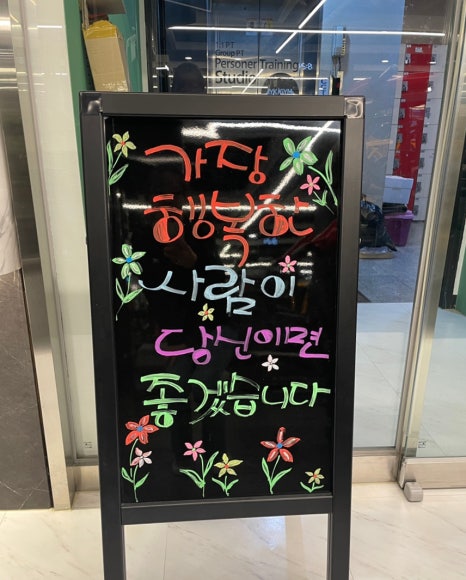 1:1 PT
Group PT
Personer Training
Studio
가장
행복한
사람이
당신이면
좋겠습니다